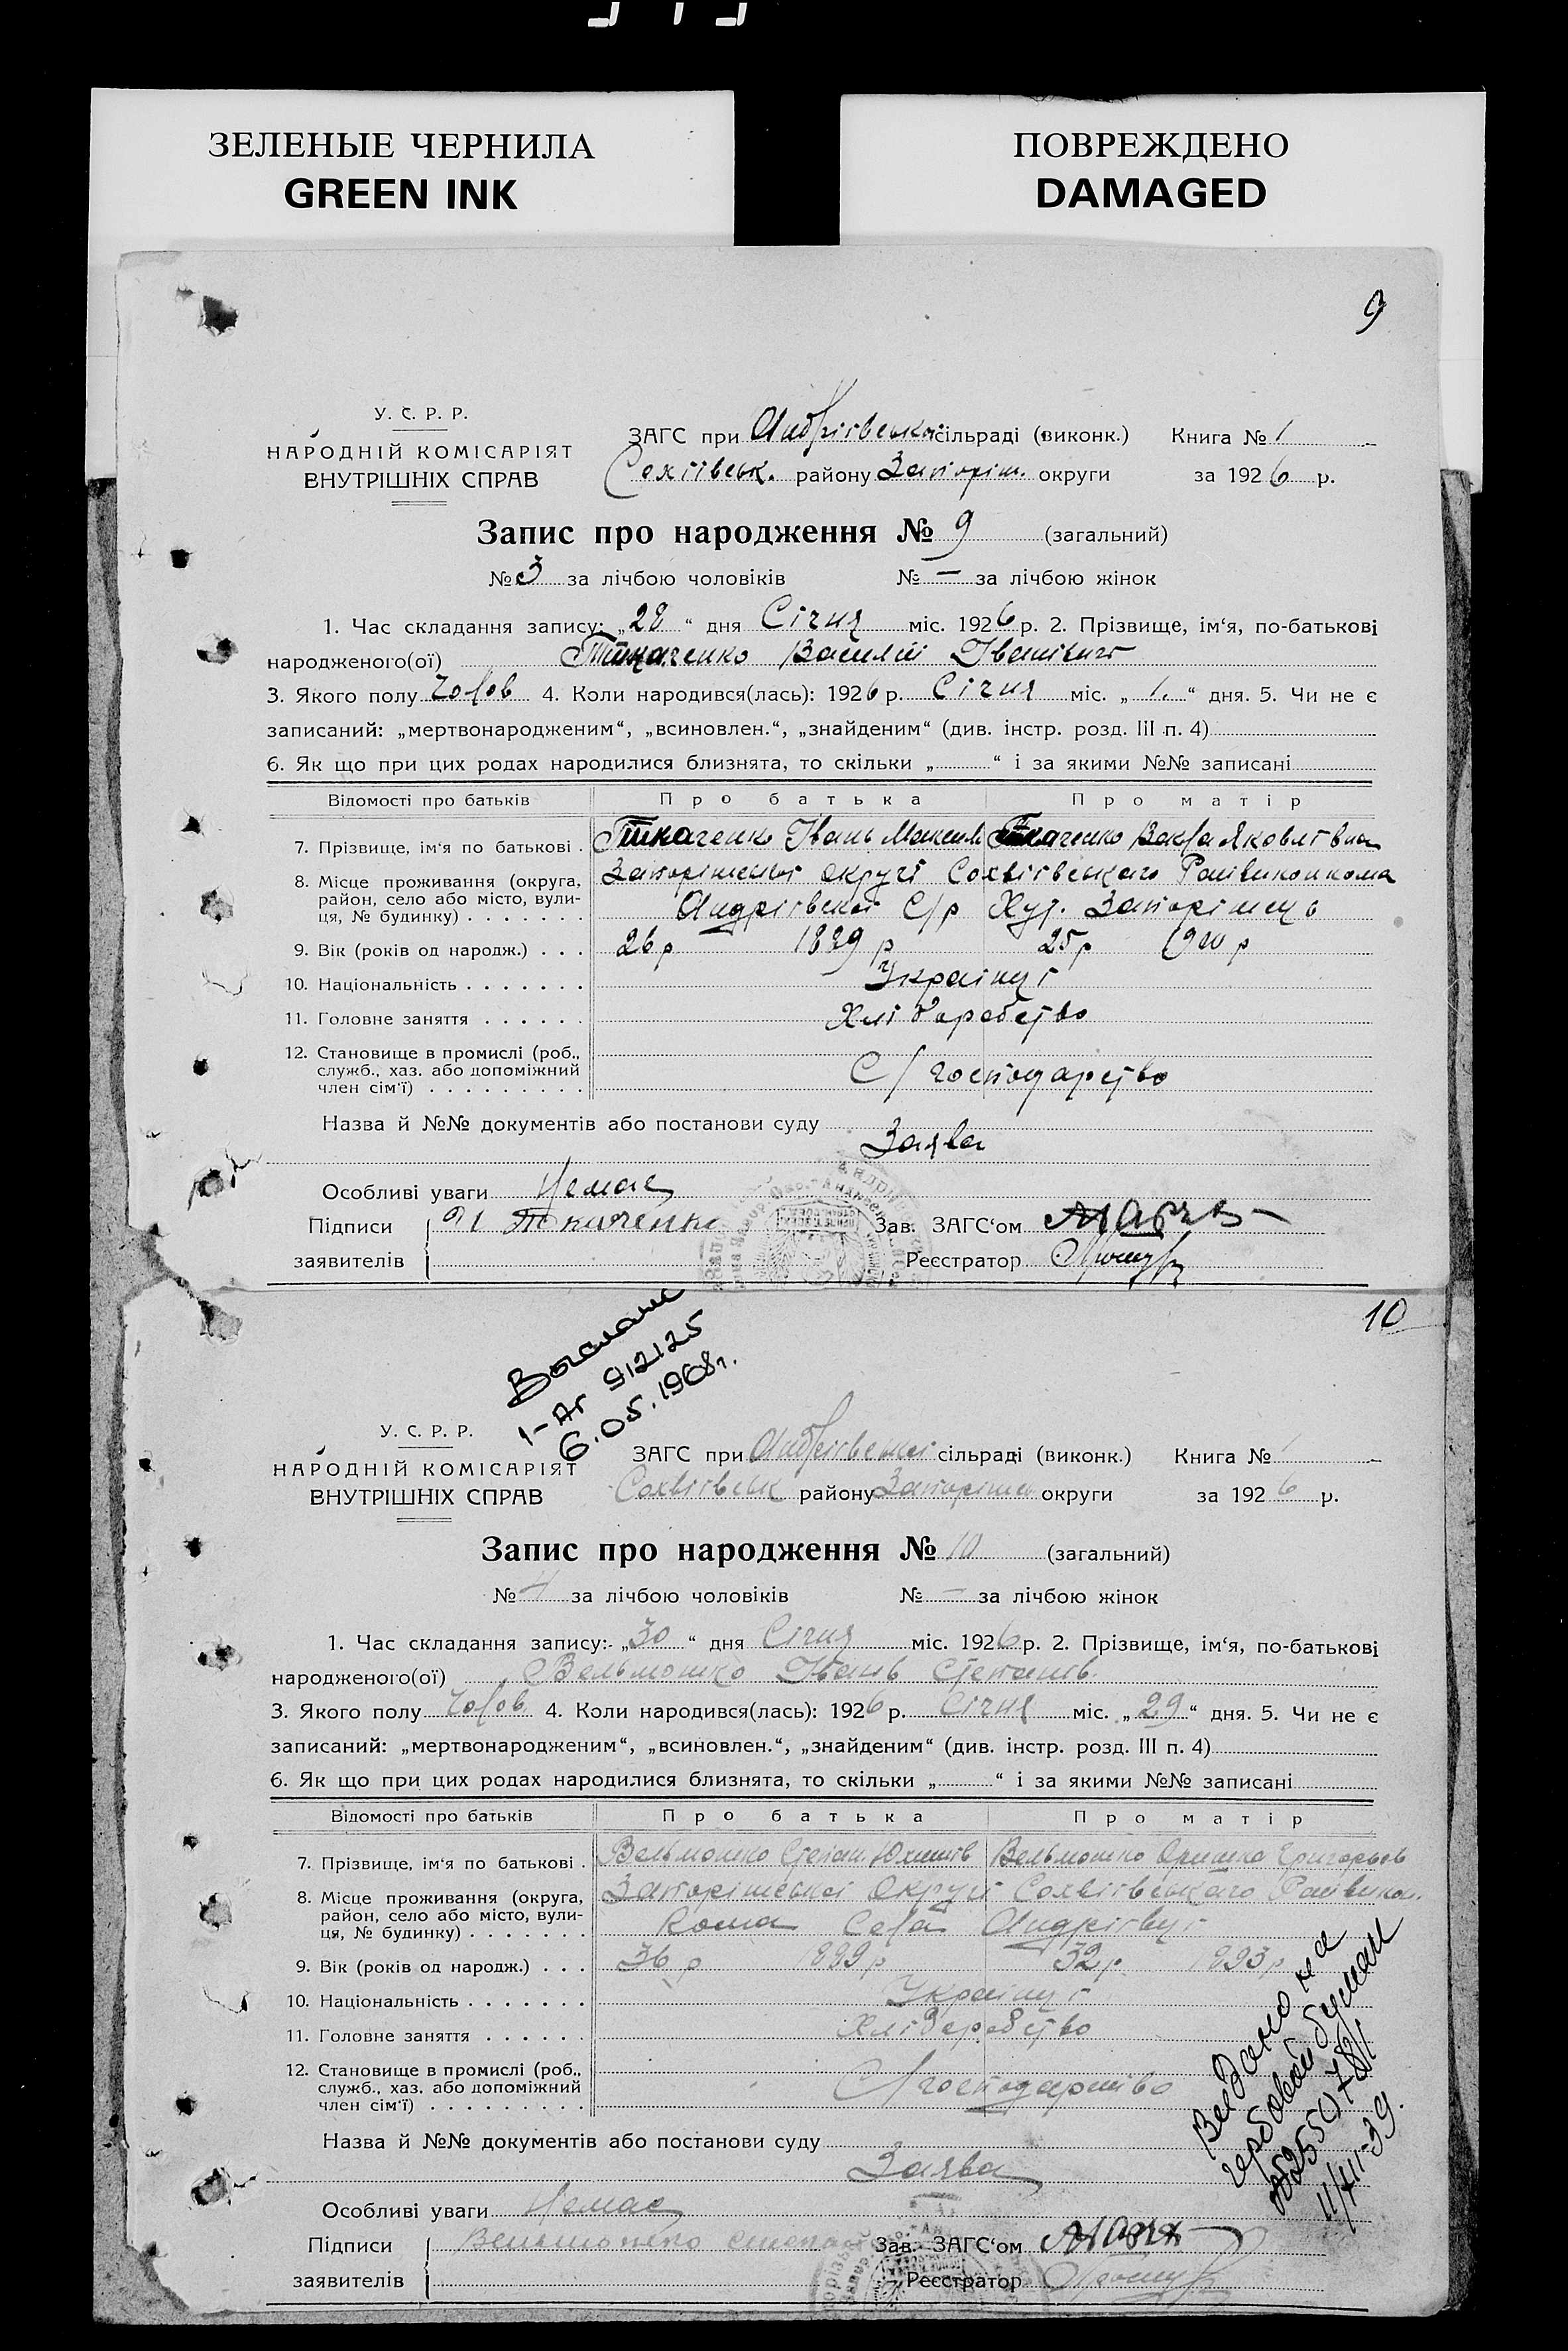 ЗЕЛЕНЫЕ ЧЕРНИЛА
GREEN INK
ПОВРЕЖДЕНО
DAMAGED
9
У. С. Р. Р.
НАРОДНІЙ КОМІСАРІЯТ
ВНУТРІШНІХ СПРАВ
ЗАГС при Андріївської сільраді (виконк.) Книга № 1
району Запоріж. округи за 1926 р.
Запис про народження № 9 (загальний)
№ 3 за лічбою чоловіків № — за лічбою жінок
1. Час складання запису: „28“ дня Січня міс. 1926 р. 2. Прізвище, ім‘я, по-батькові
народженого(ої) Ткаченко Василій Іванівич
3. Якого полу Чолов 4. Коли народився(лась): 1926 р. Січня міс. „1.“ дня. 5. Чи не є
записаний: „мертвонародженим“, „всиновлен.“, „знайденим“ (див. інстр. розд. III п. 4)
6. Як що при цих родах народилися близнята, то скільки „ “ і за якими №№ записані
Відомості про батьків Про батька Про матір
7. Прізвище, ім‘я по батькові . Ткаченко Івань Максим Ткаченко Яковлівна
8. Місце проживання (округа, район, село або місто, вулиця, № будинку) . . . . . . . Запоріжської округі Райвиконкома
Андріївської С/р Хут. Запоріжець
9. Вік (років од народж.) . . . 26 р 1899 р 25 р 1900 р
10. Національність . . . . . . . Україн
11. Головне заняття . . . . . . Хліборобство
12. Становище в промислі (роб.,
служб., хаз. або допоміжний
член сім‘ї) . . . . . . . . . С/господарство
Назва й №№ документів або постанови суду Заява
Особливі уваги Немає
Підписи Ткаченко Зав. ЗАГС‘ом
заявителів Реєстратор
10
Выслано
1-АГ 912125
6.05.1968г.
У. С. Р. Р.
НАРОДНІЙ КОМІСАРІЯТ
ВНУТРІШНІХ СПРАВ
ЗАГС при Андріївської сільраді (виконк.) Книга № 1
району округи за 1926 р.
Запис про народження № 10 (загальний)
№ 4 за лічбою чоловіків № — за лічбою жінок
1. Час складання запису: „30“ дня Січня міс. 1926 р. 2. Прізвище, ім‘я, по-батькові
народженого(ої) Вельможко Івань Степанів.
3. Якого полу Чолов 4. Коли народився(лась): 1926 р. Січня міс. „29“ дня. 5. Чи не є
записаний: „мертвонародженим“, „всиновлен.“, „знайденим“ (див. інстр. розд. III п. 4)
6. Як що при цих родах народилися близнята, то скільки „ “ і за якими №№ записані
Відомості про батьків Про батька Про матір
7. Прізвище, ім‘я по батькові . Вельможко Степан. Юхимів Вельможко Оришка Григорьев
8. Місце проживання (округа, район, село або місто, вулиця, № будинку) . . . . . . . Запоріжської Округі Райвикон.
кома Села
9. Вік (років од народж.) . . . 36 р 1889 р 32 р 1893 р
10. Національність . . . . . . . Україн
11. Головне заняття . . . . . . Хліборобство
12. Становище в промислі (роб.,
служб., хаз. або допоміжний
член сім‘ї) . . . . . . . . . С/господарство
Назва й №№ документів або постанови суду Заява
Особливі уваги Немає
Підписи Вельможко Степан Зав. ЗАГС‘ом
заявителів Реєстратор
Выдано на
гербовой бумаги